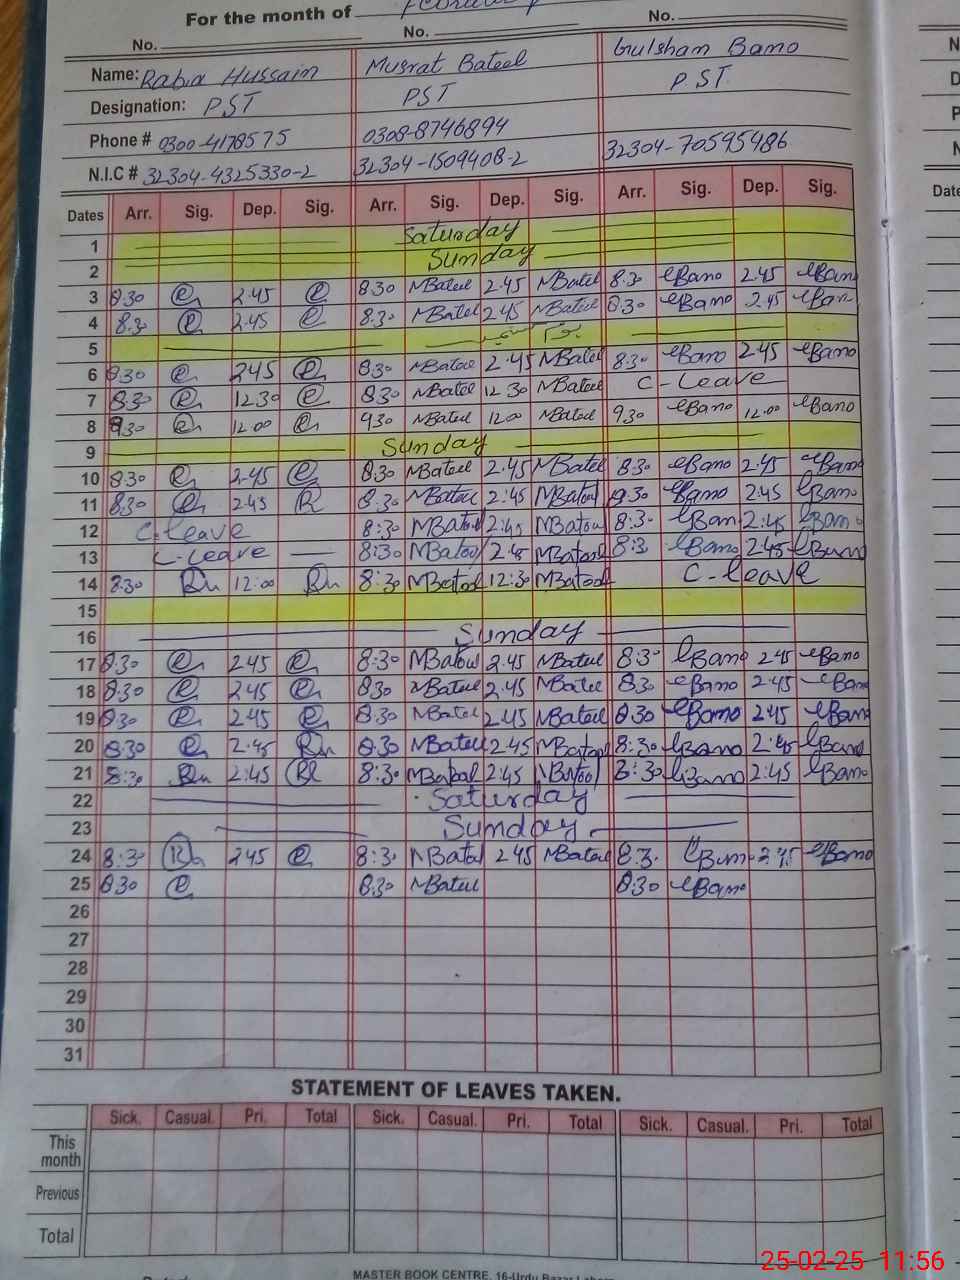 For the month of February
No. No. No.
Name: Rabia Hussain Musrat Batool Gulshan Bano
Designation: PST PST P.S.T.
Phone # 0300-4178575 0308-8746894
N.I.C # 32304-4325330-2 32304-1509408-2 32304-70595486
Dates Arr. Sig. Dep. Sig. Arr. Sig. Dep. Sig. Arr. Sig. Dep. Sig.
1 Saturday
2 Sunday
3 8.30 2.45 8.30 MBatul 2.45 MBatul 8.30 Bano 2.45 Bano
4 8.30 2.45 8.30 MBatul 2.45 MBatul 8.30 Bano 2.45 Bano
5
6 8.30 2.45 8.30 MBatul 2.45 MBatul 8.30 Bano 2.45 Bano
7 8.30 12.30 8.30 MBatul 12.30 MBatul C-Leave
8 9.30 12.00 9.30 MBatul 12.00 MBatul 9.30 Bano 12.00 Bano
9 Sunday
10 8.30 2.45 8.30 MBatul 2.45 MBatul 8.30 Bano 2.45 Bano
11 8.30 2.45 R 8.30 MBatul 2:45 MBatool Bano 2:45 Bano
12 C-leave 8:30 MBatool 2:45 MBatool 8:30 Bano 2:45 Bano
13 C-Leave 8:30 MBatool 2:45 MBatool 8:30 Bano 2:45 Bano
14 8:30 12:00 8:30 MBatool 12:30 MBatool C-leave
15
16 Sunday
17 8:30 2.45 8:30 MBatool 2.45 MBatul 8:30 Bano 2.45 Bano
18 8:30 2.45 8.30 MBatul 2.45 MBatul 8.30 Bano 2.45 Bano
19 8.30 2.45 8.30 MBatul 2.45 MBatul 8.30 Bano 2.45 Bano
20 8.30 2.45 8.30 MBatul 2.45 MBatool 8:30 Bano 2:45 Bano
21 8:30 2:45 8:30 MBatool 2:45 8:30 Bano 2:45 Bano
22 Saturday
23 Sunday
24 8:30 2.45 8:30 MBatul 2.45 MBatul 8:30 Bano 2.45 Bano
25 8.30 8.30 MBatul 8.30 Bano
26
27
28
29
30
31
STATEMENT OF LEAVES TAKEN.
Sick. Casual. Pri. Total Sick. Casual. Pri. Total Sick. Casual. Pri. Total
This
month
Previous
Total
MASTER BOOK CENTRE, 16-Urdu Bazar
25-02-25 11:56